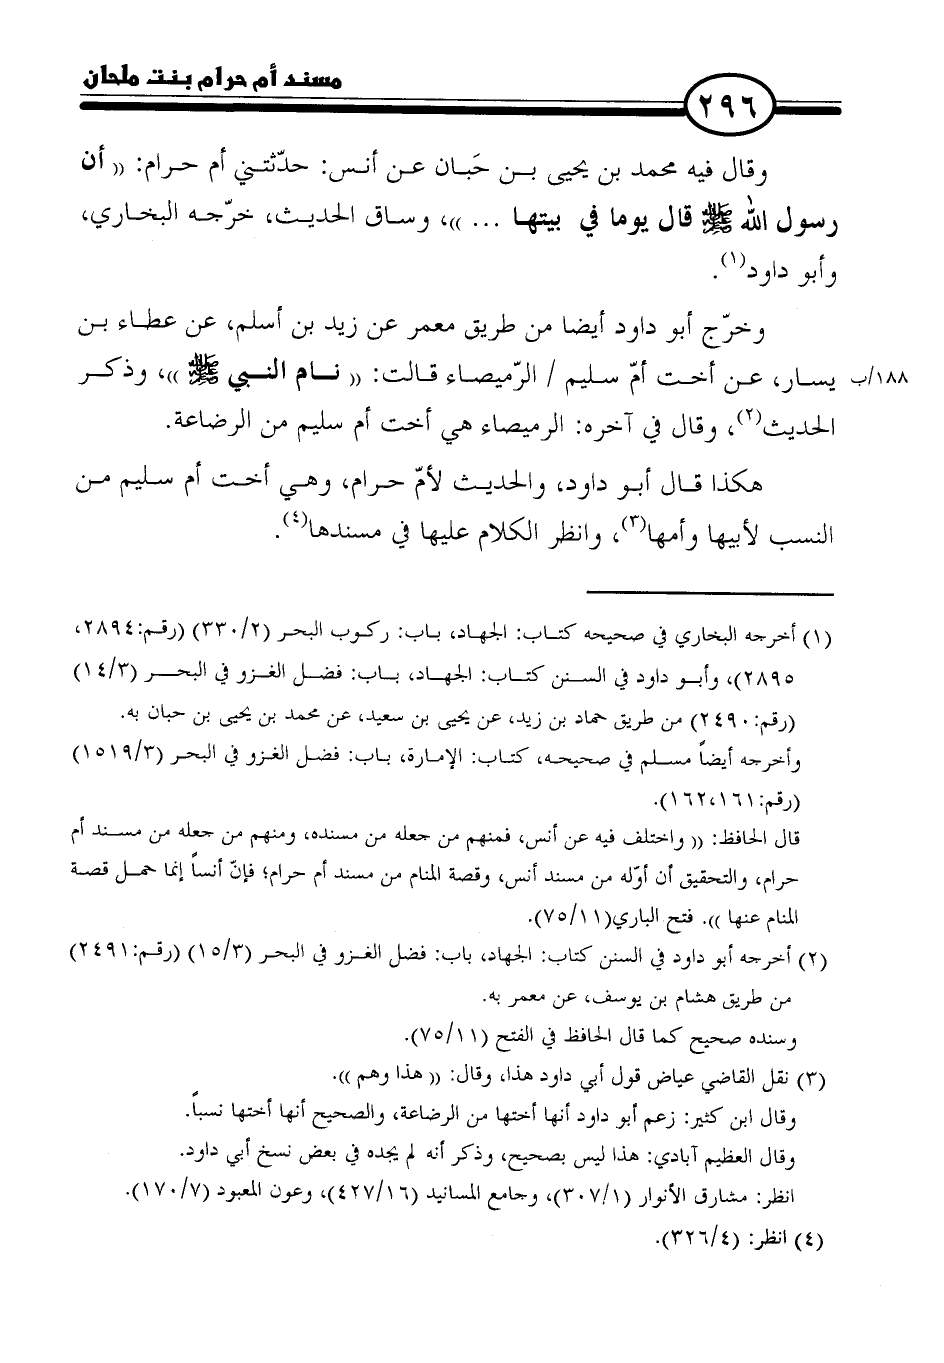 مسند أم حرام بنت ملحان
٢٩٦
وقال فيه محمد بن يحيى بن حَبان عن أنس: حدّثتني أم حرام: (( أن
رسول الله ﷺ قال يوما في بيتها ... ))، وساق الحديث، خرّجه البخاري،
وأبو داود(١).
وخرّج أبو داود أيضا من طريق معمر عن زيد بن أسلم، عن عطاء بن
يسار، عن أخت أمّ سليم / الرّميصاء قالت: (( نام النبي ﷺ ))، وذكر
١٨٨/ب
الحديث(٢)، وقال في آخره: الرميصاء هي أخت أم سليم من الرضاعة.
هكذا قال أبو داود، والحديث لأمّ حرام، وهي أخت أم سليم من
النسب لأبيها وأمها(٣)، وانظر الكلام عليها في مسندها(٤).
(١) أخرجه البخاري في صحيحه كتاب: الجهاد، باب: ركوب البحر (٣٣٠/٢) (رقم:٢٨٩٤،
٢٨٩٥)، وأبو داود في السنن كتاب: الجهاد، باب: فضل الغزو في البحر (١٤/٣)
(رقم:٢٤٩٠) من طريق حماد بن زيد، عن يحيى بن سعيد، عن محمد بن يحيى بن حبان به.
وأخرجه أيضاً مسلم في صحيحه، كتاب: الإمارة، باب: فضل الغزو في البحر (١٥١٩/٣)
(رقم:١٦٢،١٦١).
قال الحافظ: (( واختلف فيه عن أنس، فمنهم من جعله من مسنده، ومنهم من جعله من مسند أم
حرام، والتحقيق أن أوّله من مسند أنس، وقصة المنام من مسند أم حرام؛ فإنّ أنساً إنما حمل قصة
المنام عنها )). فتح الباري(٧٥/١١).
(٢) أخرجه أبو داود في السنن كتاب: الجهاد، باب: فضل الغزو في البحر (١٥/٣) (رقم:٢٤٩١)
من طريق هشام بن يوسف، عن معمر به.
وسنده صحيح كما قال الحافظ في الفتح (٧٥/١١).
(٣) نقل القاضي عياض قول أبي داود هذا، وقال: (( هذا وهم )).
وقال ابن كثير: زعم أبو داود أنها أختها من الرضاعة، والصحيح أنها أختها نسباً.
وقال العظيم آبادي: هذا ليس بصحيح، وذكر أنه لم يجده في بعض نسخ أبي داود.
انظر: مشارق الأنوار (٣٠٧/١)، وجامع المسانيد (٤٢٧/١٦)، وعون المعبود (١٧٠/٧).
(٤) انظر: (٣٢٦/٤).